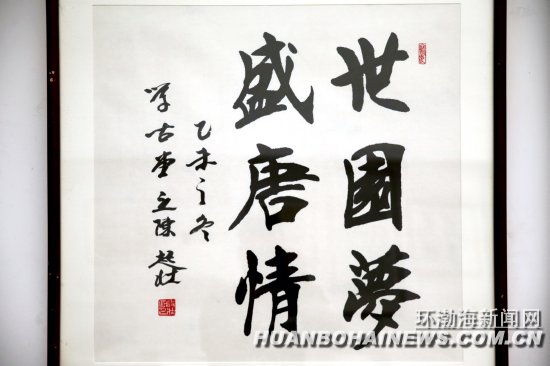 世園夢
盛唐情
乙未之冬
学古堂主陳起壮
环渤海新闻网
HUANBOHAINEWS.COM.CN